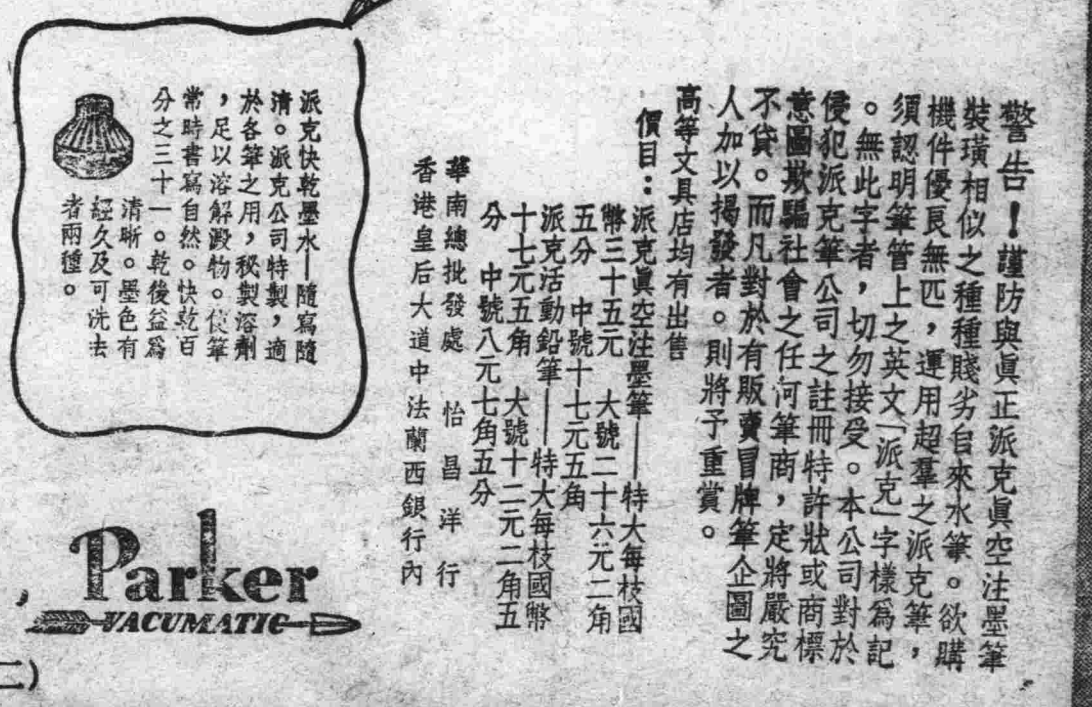 警告！謹防與眞正派克眞空注墨筆
裝璜相似之種種賤劣自來水筆。欲購
機件優良無匹，運用超羣之派克筆，
須認明筆管上之英文「派克」字樣爲記
。無此字者，切勿接受。本公司對於
侵犯派克筆公司之註冊特許狀或商標
意圖欺騙社會之任何筆商，定將嚴究
不貸。而凡對於有販賣冒牌筆企圖之
人加以揭發者。則將予重賞。
高等文具店均有出售
價目：派克眞空注墨筆——特大每枝國
幣三十五元　大號二十六元二角
五分　中號十七元五角
派克活動鉛筆——特大每枝國幣
十七元五角　大號十二元二角五
分　中號八元七角五分
華南總批發處　怡昌洋行
香港皇后大道中法蘭西銀行內
派克快乾墨水—隨寫隨
清。派克公司特製，適
於各筆之用，秘製溶劑
，足以溶解澱物。使筆
常時書寫自然。快乾百
分之三十一。乾後益爲
清晰。墨色有
經久及可洗去
者兩種。
Parker
VACUMATIC
二)